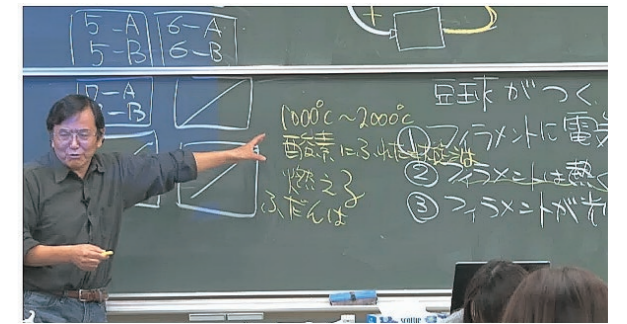 5-A
5-B
6-A
6-B
-A
-B
1000℃~2000℃
酸素にふ
燃える
ふだんは
豆球がつく
①フィラメントに電気
②フィラメントは熱く
③フィラメントが光